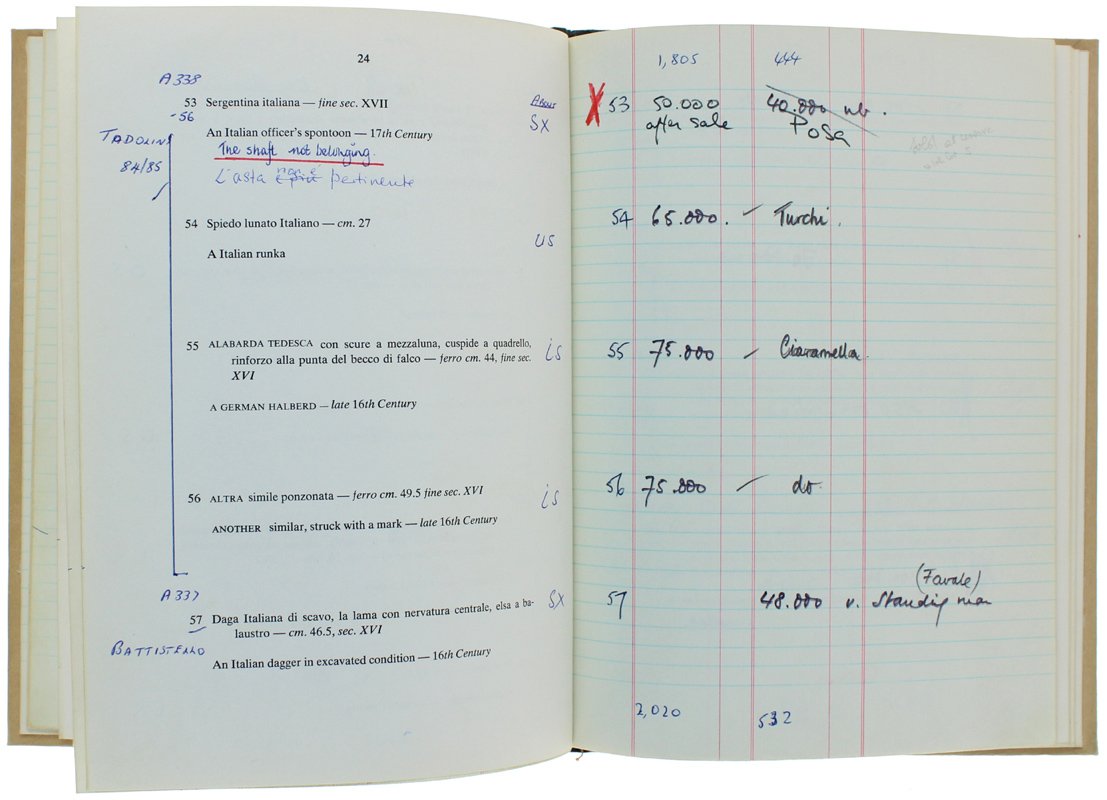 24
A 338
53 Sergentina italiana — fine sec. XVII
-56
About
SX
TADOLINI
84/85
An Italian officer's spontoon — 17th Century
The shaft not belonging.
L'asta non è pertinente
54 Spiedo lunato Italiano — cm. 27
US
A Italian runka
55 ALABARDA TEDESCA con scure a mezzaluna, cuspide a quadrello,
rinforzo alla punta del becco di falco — ferro cm. 44, fine sec.
XVI
is
A GERMAN HALBERD — late 16th Century
56 ALTRA simile ponzonata — ferro cm. 49.5 fine sec. XVI
is
ANOTHER similar, struck with a mark — late 16th Century
A 337
57 Daga Italiana di scavo, la lama con nervatura centrale, elsa a ba-
laustro — cm. 46.5, sec. XVI
SX
BATTISTELLO
An Italian dagger in excavated condition — 16th Century
1,805 444
X 53 50.000 40.000 nb.
after sale Posa
54 65.000. — Turchi.
55 75.000 — Ciaramella.
56 75.000 — do.
(Favale)
57 48.000 v. Standing man
2,020 532